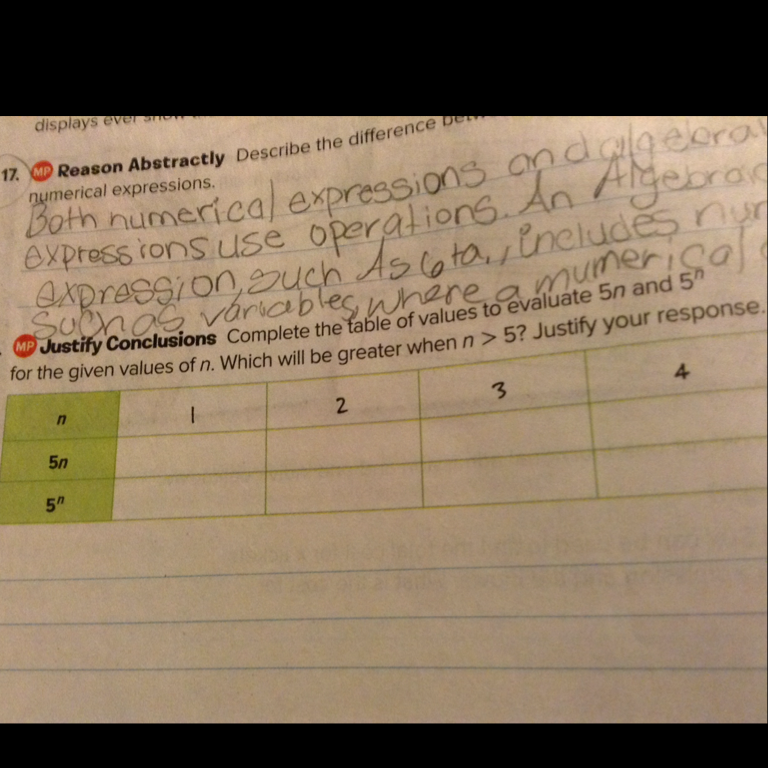 displays ever
17. MP Reason Abstractly Describe the difference
numerical expressions.
Both numerical expressions and algebrai
expressions use operations. An Algebrai
expression, such As 6+a, includes num
such as variables, where a mumerical
MP Justify Conclusions Complete the table of values to evaluate 5n and 5ⁿ
for the given values of n. Which will be greater when n > 5? Justify your response.
n 1 2 3 4
5n
5ⁿ